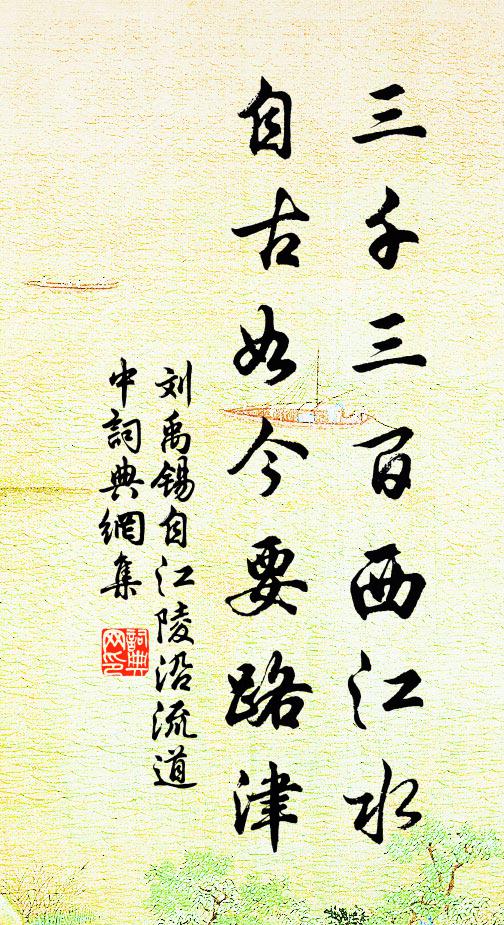 三千三百西江水
自古如今要路津
刘禹锡自江陵沿流道
中詞典網集
詞典
网印